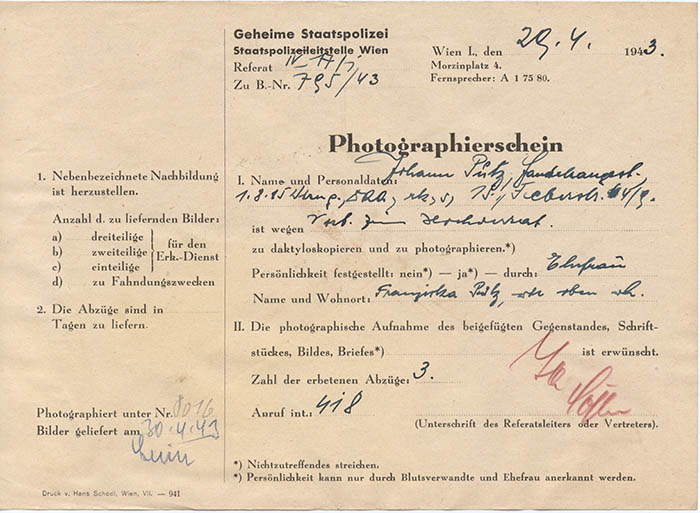 Geheime Staatspolizei
Staatspolizeileitstelle Wien
Referat IV
Zu B.-Nr. 795/43
Wien I., den 29.4. 1943.
Morzinplatz 4.
Fernsprecher: A 1 75 80.
Photographierschein
1. Nebenbezeichnete Nachbildung
ist herzustellen.
Anzahl d. zu liefernden Bilder:
a) dreiteilige
b) zweiteilige
c) einteilige
für den
Erk.-Dienst
d) zu Fahndungszwecken
2. Die Abzüge sind in
Tagen zu liefern.
Photographiert unter Nr. 8016
Bilder geliefert am 30.4.43
I. Name und Personaldaten: Johann Pütz,
1.8.95 DRA, rk,
ist wegen Vorb. zum Hochverrat.
zu daktyloskopieren und zu photographieren.*)
Persönlichkeit festgestellt: nein*) — ja*) — durch: Ehefrau
Name und Wohnort: Franziska Pütz, wie oben wh.
II. Die photographische Aufnahme des beigefügten Gegenstandes, Schrift-
stückes, Bildes, Briefes*) ist erwünscht.
Zahl der erbetenen Abzüge: 3.
Anruf int.: 418
(Unterschrift des Referatsleiters oder Vertreters).
*) Nichtzutreffendes streichen.
*) Persönlichkeit kann nur durch Blutsverwandte und Ehefrau anerkannt werden.
Druck v. Hans Schedl, Wien, VII. — 941